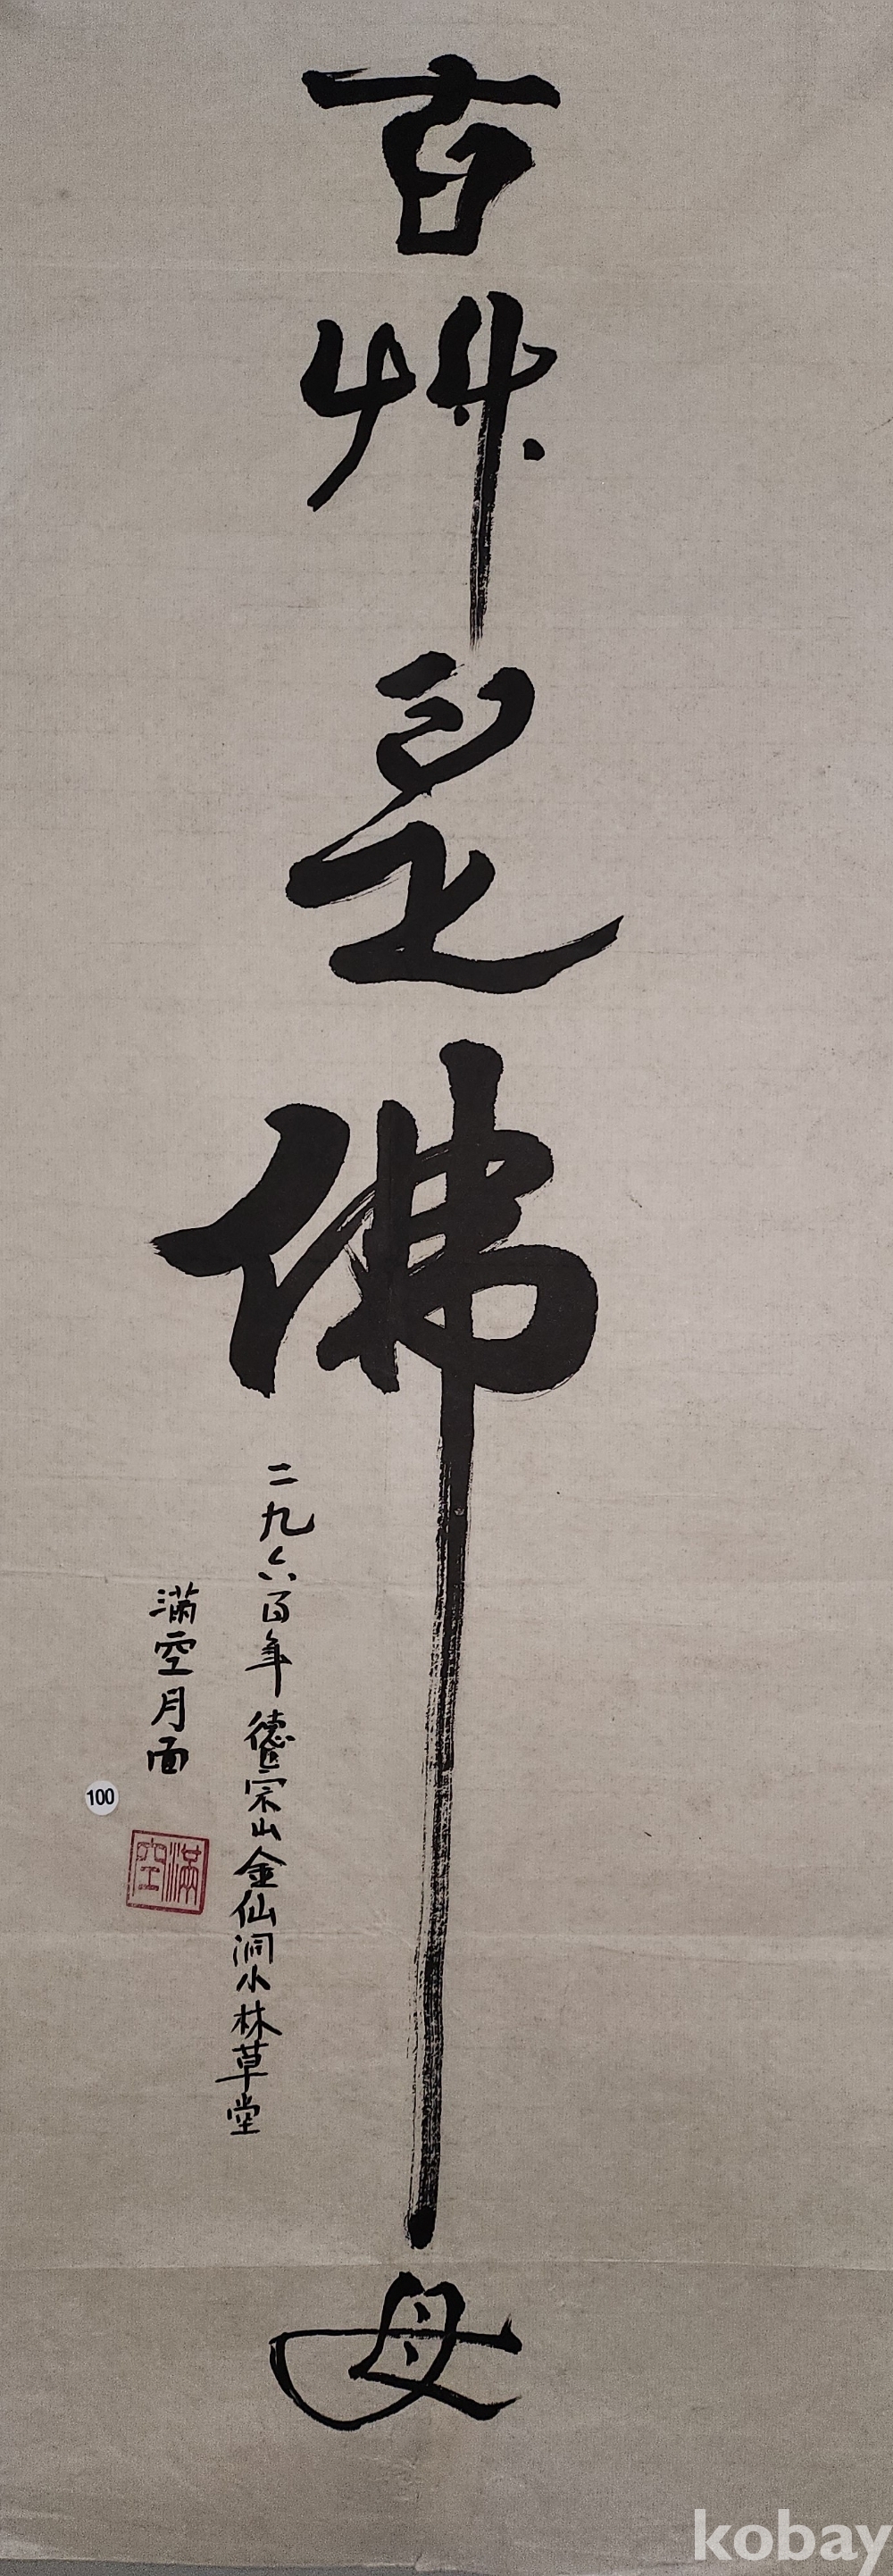 百艸是佛母
二九六百年 德宗山金仙洞小林草堂
滿空月面
滿空
100
kobay